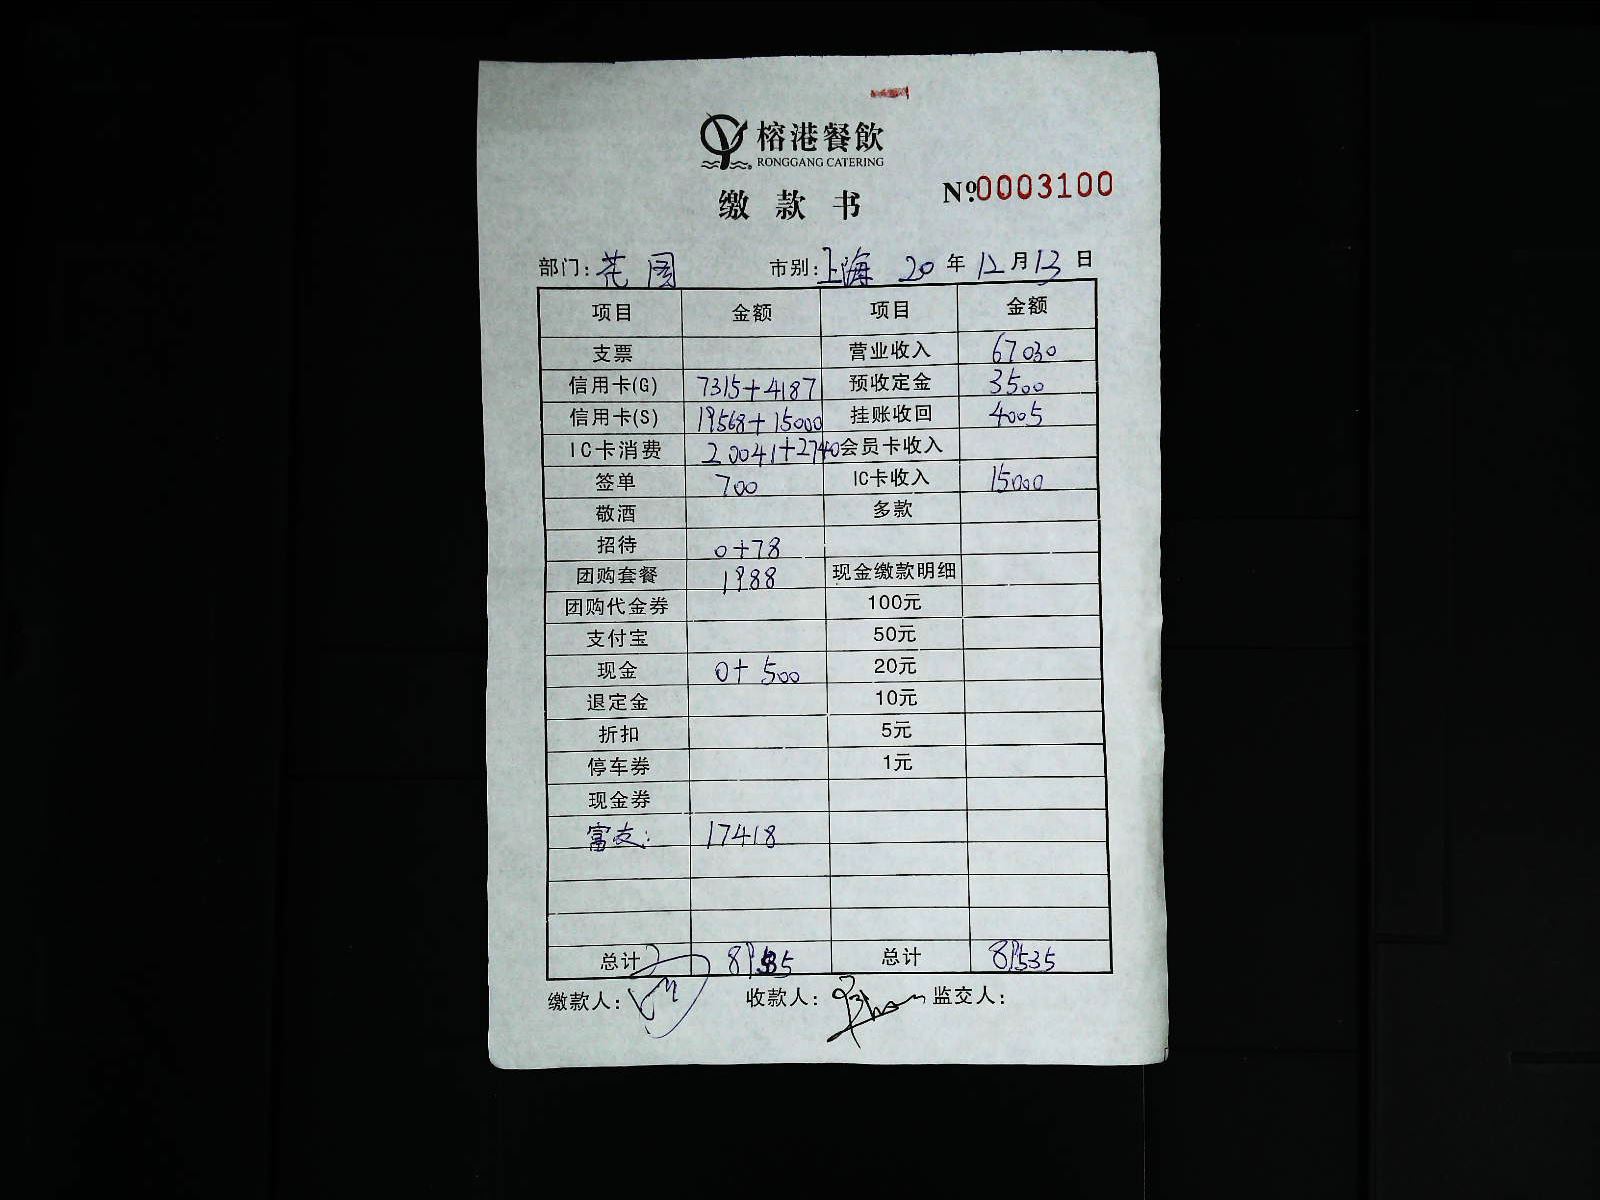 榕港餐飲
RONGGANG CATERING
缴款书
№.0003100
部门: 花园 市别: 上海 20年12月13日
项目 金额 项目 金额
支票 营业收入 67030
信用卡(G) 7315+4187 预收定金 3500
信用卡(S) 19568+15000 挂账收回 4005
IC卡消费 20041+2740 会员卡收入
签单 700 IC卡收入 15000
敬酒 多款
招待 0+78
团购套餐 1988 现金缴款明细
团购代金券 100元
支付宝 50元
现金 0+500 20元
退定金 10元
折扣 5元
停车券 1元
现金券
富友: 17418
总计 89535 总计 89535
缴款人: 收款人: 监交人: